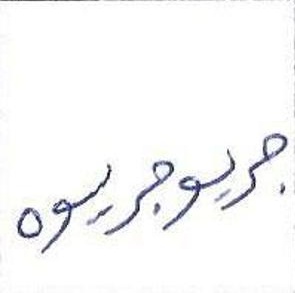 جريو جريوه